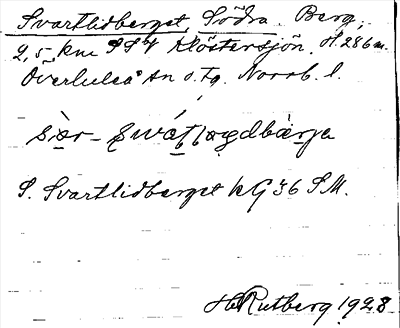 Svartlidberget, Södra. Berg,
2,5 km SSV Klöstersjön. H. 286 m.
Överluleå sn o. tg. Norrb. l.
S. Svartlidberget kG 36 S.M.
H. Rutberg 1928